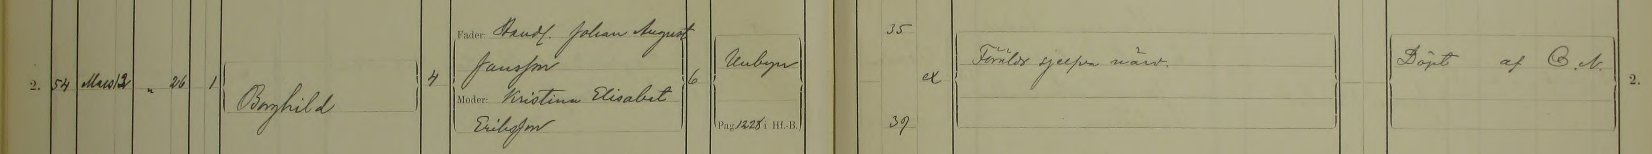 Fader: Handl. Johan August
35
Jansson
Unbyn
Föräldr sjelfva närv.
Döpt af C. N.
2. 54 Mars 12 „ 26 1 4 6 ex 2.
Borghild
Moder: Kristina Elisabet
Eriksson
Pag. 1228 i Hf.-B.
39